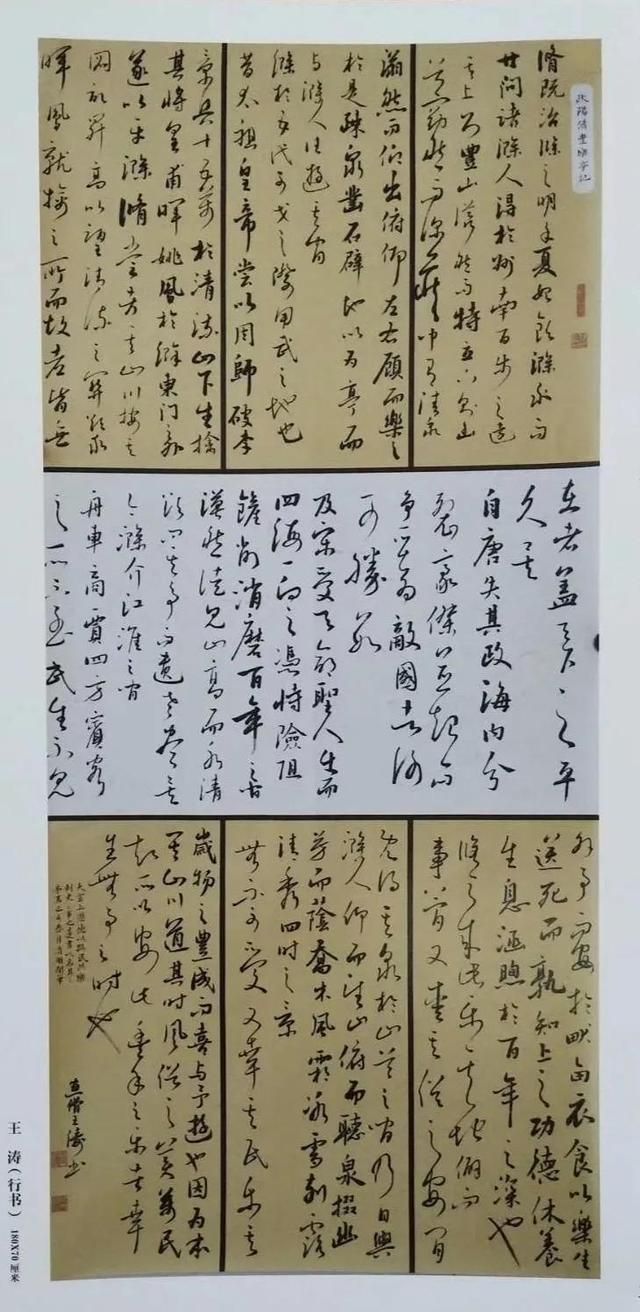 歐陽脩豐樂亭記
脩既治滁之明年夏始飲滁水而
甘問諸滁人得於州南百步之近
其上則豐山聳然而特立下則幽
谷窈然而深藏中有清泉
滃然而仰出俯仰左右顧而樂之
於是疏泉鑿石辟地以為亭而
與滁人往遊其間
滁於五代干戈之際用武之地也
昔太祖皇帝嘗以周師破李
景兵十五萬於清流山下生擒
其將皇甫暉姚鳳於滁東門之外
遂以平滁脩嘗考其山川按其
圖記昇高以望清流之關欲求
暉鳳就擒之所而故老皆無
在者蓋天下之平
久矣
自唐失其政海內分
裂豪傑並起而
爭所為敵國者何
可勝數
及宋受天命聖人出而
四海一向之憑恃險阻
鏟削消磨百年之間
漠然徒見山高而水清
欲問其事而遺老盡矣
今滁介江淮之間
舟車商賈四方賓客
之所不至民生不見
外事而安於畎畝衣食以樂生
送死而孰知上之功德休養
生息涵煦於百年之深也
脩之來此樂其地僻而
事簡又愛其俗之安閒
既得斯泉於山谷之間乃日與
滁人仰而望山俯而聽泉掇幽
芳而蔭喬木風霜冰雪刻露
清秀四時之景
無不可愛又幸其民樂其
歲物之豐成而喜與予遊也因為本
其山川道其時風俗之美 民
知所以安此豐年之樂者幸
生無事之時也
夫宣上恩德以與民共樂
刺史之事也遂書以名其
王濤书
王 涛（行书） 180X70厘米